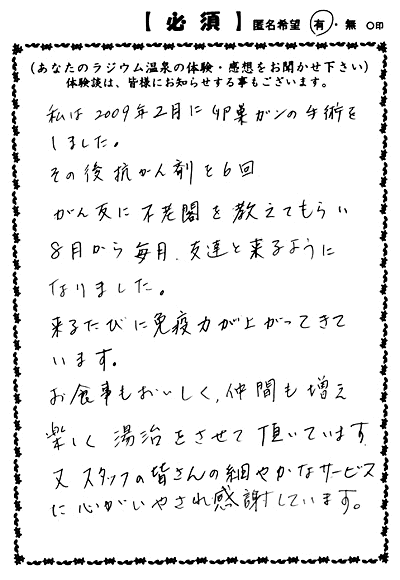 【必須】 匿名希望 有・無 ○印
(あなたのラジウム温泉の体験・感想をお聞かせ下さい)
体験談は、皆様にお知らせする事もございます。
私は2009年2月に卵巣ガンの手術を
しました。
その後抗がん剤を6回
がん友に不老閣を教えてもらい
8月から毎月、友達と来るように
なりました。
来るたびに免疫力が上がってきて
います。
お食事もおいしく、仲間も増え
楽しく湯治をさせて頂いています
又スタッフの皆さんの細やかなサービス
に心がいやされ感謝しています。